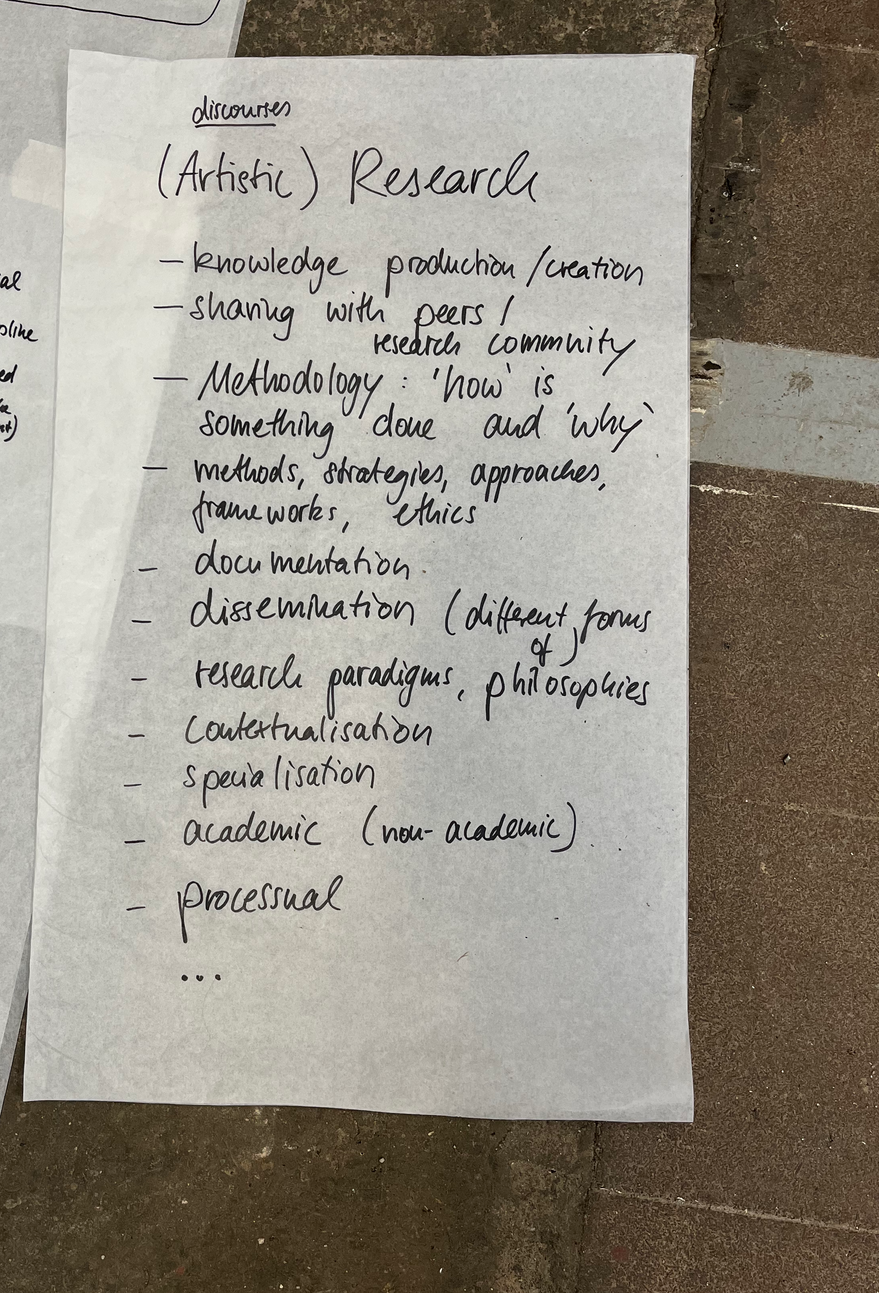 discourses
(Artistic) Research
— knowledge production / creation
— sharing with peers /
research community
— Methodology : 'how' is
something done and 'why'
— methods, strategies, approaches,
frameworks, ethics
- documentation.
- dissemination (different forms
of)
- research paradigms, philosophies
- contextualisation
- specialisation
- academic (non-academic)
- processual
...